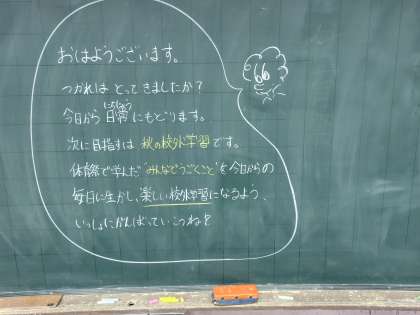 おはようございます。
つかれは とってきましたか?
今日から日常にもどります。
にちじょう
次に目指すは 秋の校外学習です。
体育祭で学んだ"みんなでうごくこと"を今日からの
毎日に生かし、楽しい校外学習になるよう、
いっしょにがんばっていこうね